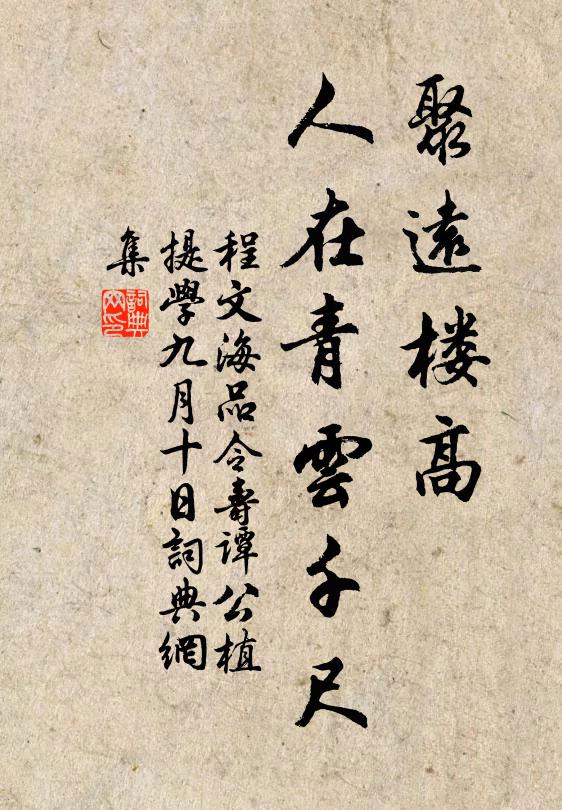 聚遠楼高
人在青雲千尺
程文海品令壽譚公植
提學九月十日詞典網
集
詞典网印